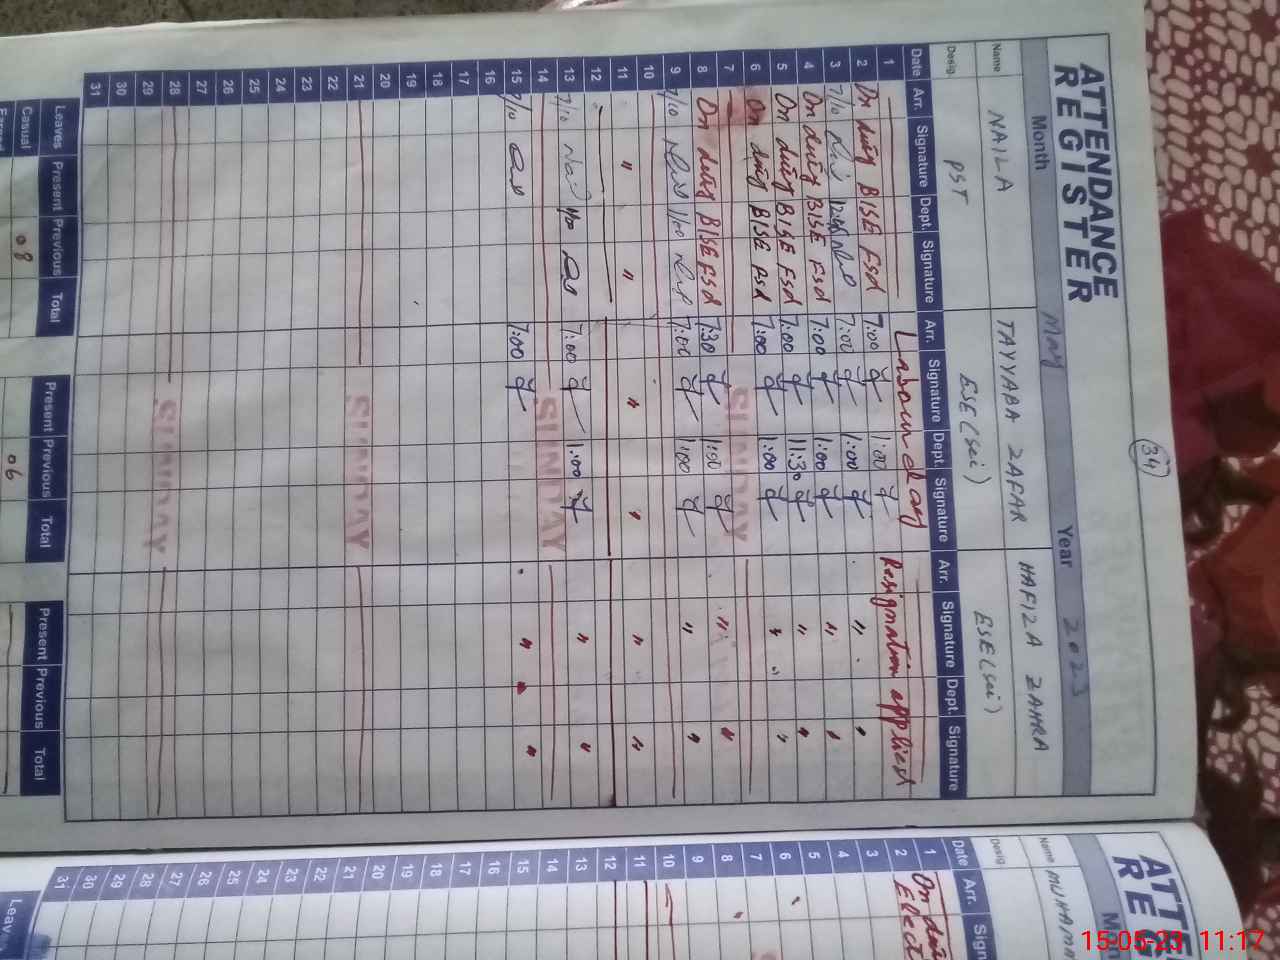 34
ATTENDANCE
REGISTER
Month May Year 2023
Name NAILA TAYYABA ZAFAR HAFIZA ZAHRA
Desig. PST ESE(sci) ESE(sci)
Date Arr. Signature Dept. Signature Arr. Signature Dept. Signature Arr. Signature Dept. Signature
1 Labour day Resignation applied
2 On duty BISE Fsd 7:00 1:00 " "
3 7/10 7:00 1:00 " "
4 On duty BISE Fsd 7:00 1:00 " "
5 On duty BISE Fsd 7:00 11:30 " "
6 On duty BISE Fsd 7:00 1:00
7 SUNDAY
8 On duty BISE Fsd 7:30 1:00 " "
9 7/10 1/00 7:00 1:00 " "
10
11 " " " " " "
12
13 7/10 1/00 7:00 1:00 " "
14 SUNDAY
15 7/10 7:00 " "
16
17
18
19
20
21 SUNDAY
22
23
24
25
26
27
28 SUNDAY
29
30
31
Leaves Present Previous Total Present Previous Total Present Previous Total
Casual 08 06
Earned
ATTE
REG
Mon
Name MUHAMM
Desig.
Date Arr. Sign
1 On duty
2 Elect
3
4
5
6
7
8
9
10
11
12
13
14
15
16
17
18
19
20
21
22
23
24
25
26
27
28
29
30
31
Leave
15-05-23 11:17